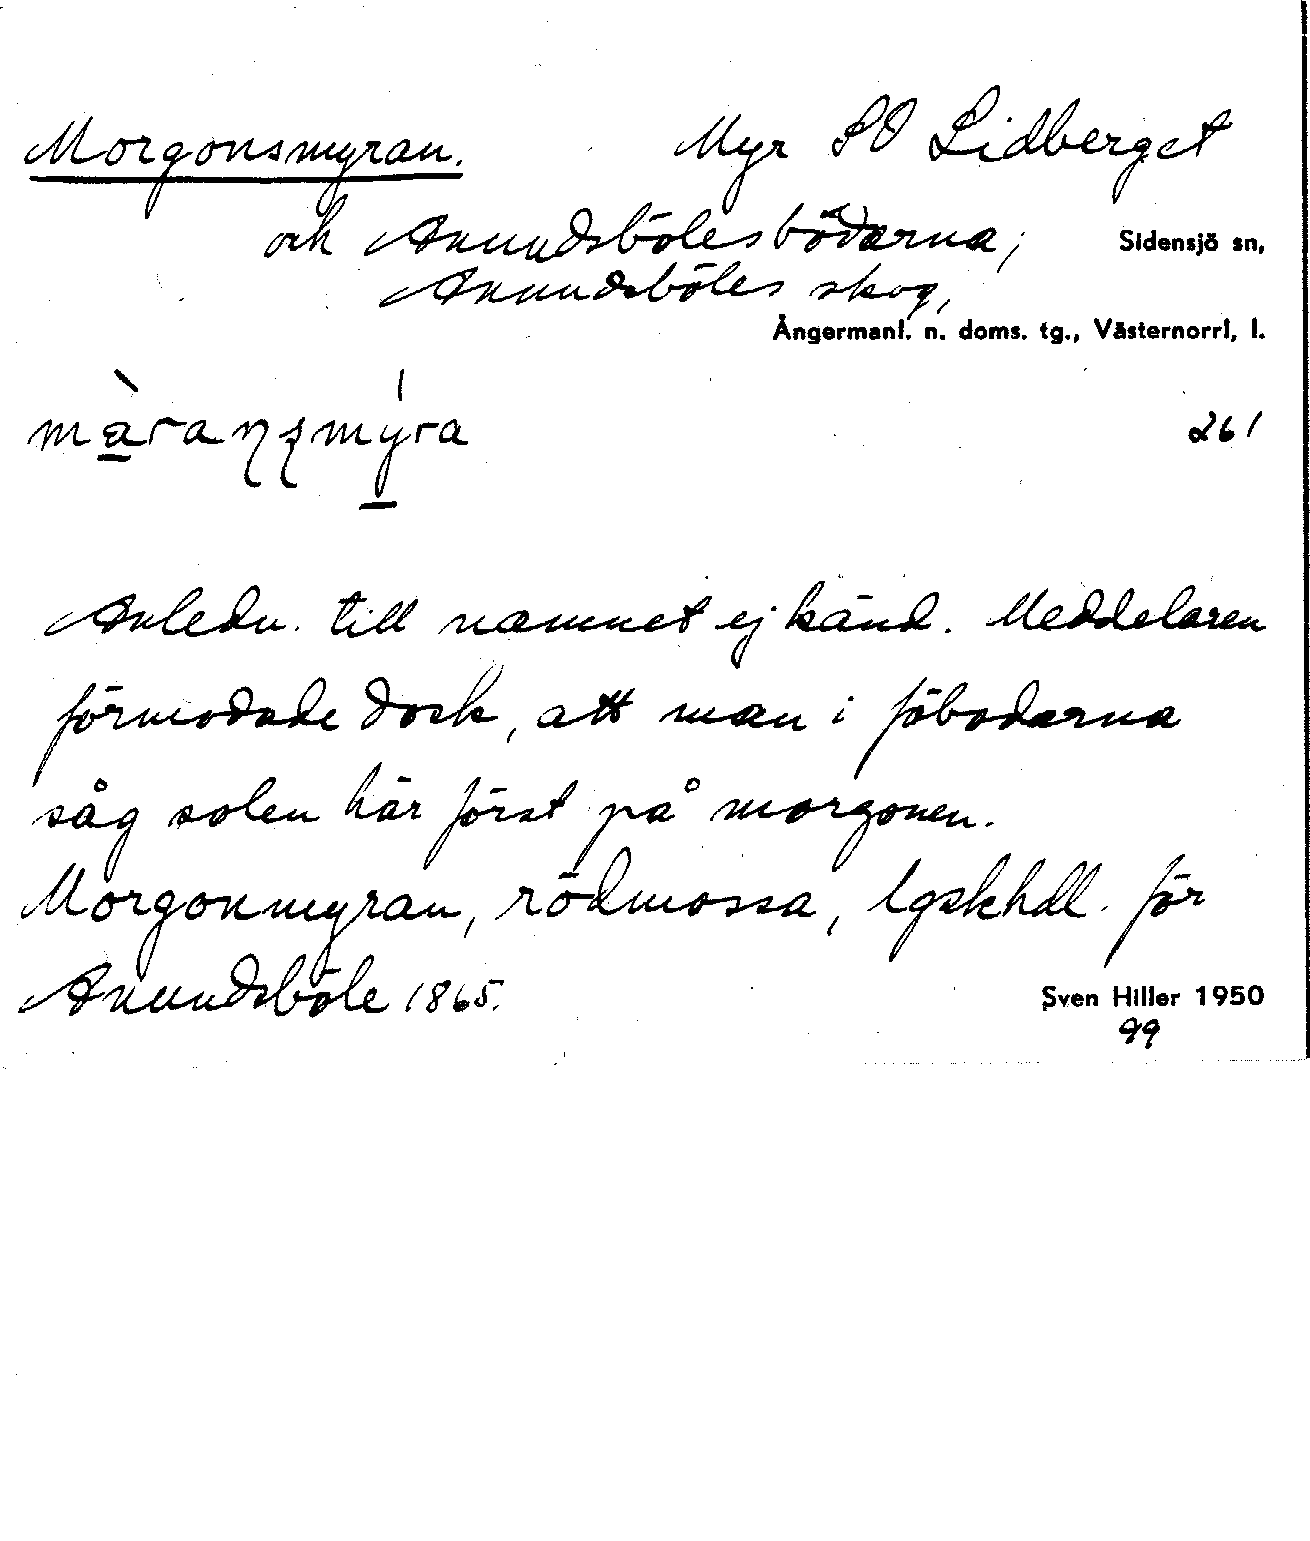 Morgonsmyran. Myr SO Lidberget
och Anundsbölesbodarna; Sidensjö sn,
Anundsböles skog,
Ångermanl. n. doms. tg., Västernorrl, l.
261
Anledn. till namnet ej känd. Meddelaren
förmodade dock, att man i fäbodarna
såg solen här först på morgonen.
Morgonmyran, rödmossa, lgskhdl. för
Anundsböle 1865. Sven Hiller 1950
99